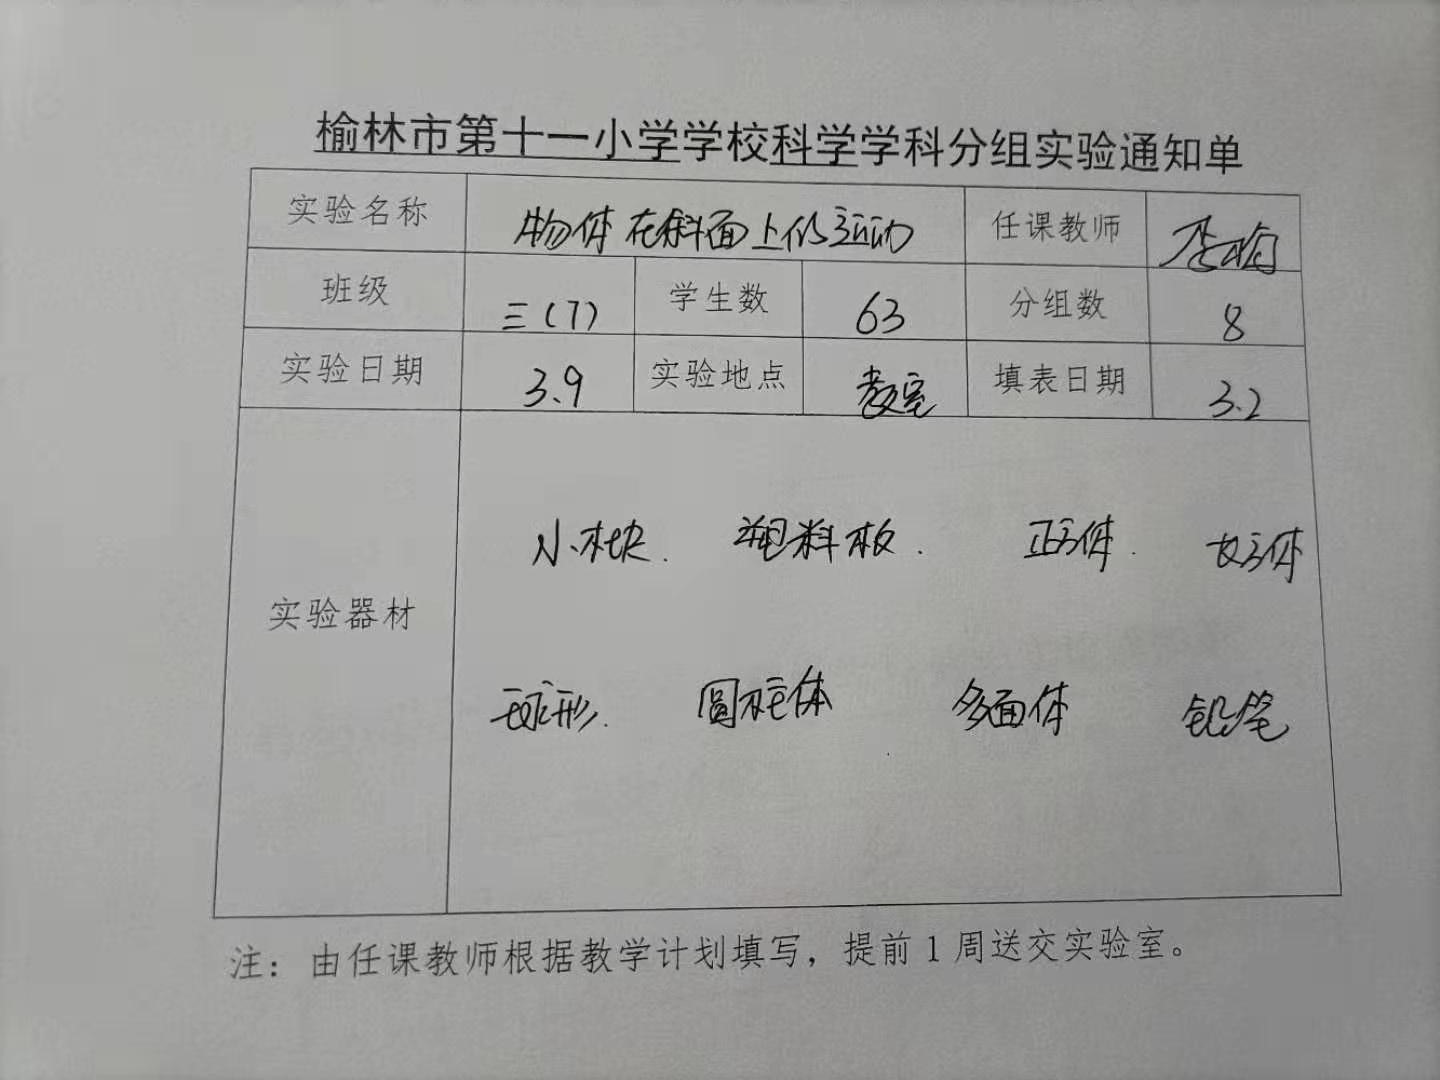 榆林市第十一小学学校科学学科分组实验通知单
实验名称 物体在斜面上的运动 任课教师
班级 三(7) 学生数 63 分组数 8
实验日期 3.9 实验地点 教室 填表日期 3.2
实验器材
小木块. 塑料板. 正方体. 长方体
球形. 圆柱体 多面体 铅笔
注：由任课教师根据教学计划填写，提前1周送交实验室。